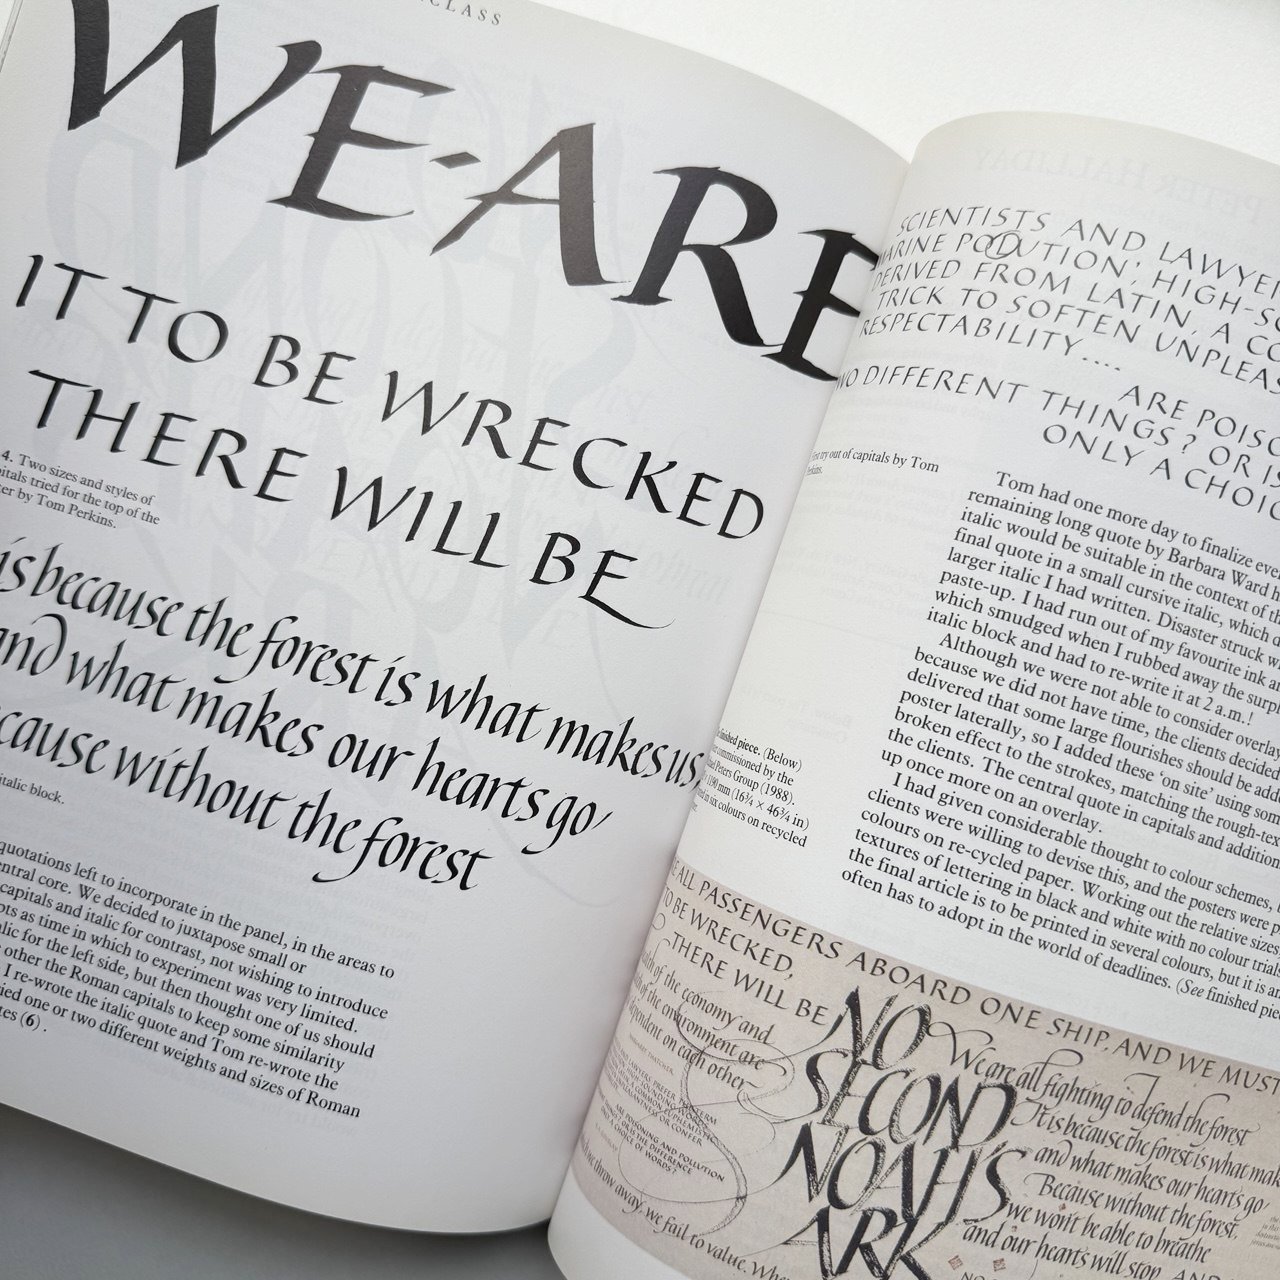 CLASS
WE-ARE
IT TO BE WRECKED
THERE WILL BE
4. Two sizes and styles of
tried for the top of the
by Tom Perkins.
is because the forest is what makes us,
and what makes our hearts go
without the forest
italic block.
quotations left to incorporate in the panel, in the areas to
core. We decided to juxtapose small or
capitals and italic for contrast, not wishing to introduce
as time in which to experiment was very limited.
for the left side, but then thought one of us should
other the Roman capitals to keep some similarity
I re-wrote the italic quote and Tom re-wrote the
one or two different weights and sizes of Roman
(6).
SCIENTISTS AND
POLLUTION', HIGH-
DERIVED FROM LATIN, A
TRICK TO SOFTEN
RESPECTABILITY....
ARE
NO DIFFERENT THINGS? OR IS
ONLY A
try out of capitals by Tom
Tom had one more day to finalize
remaining long quote by Barbara Ward
italic would be suitable in the context of
final quote in a small cursive italic, which
larger italic I had written. Disaster struck
paste-up. I had run out of my favourite ink
which smudged when I rubbed away the
italic block and had to re-write it at 2 a.m.!
Although we were not able to consider
because we did not have time, the clients decided
delivered that some large flourishes should be
poster laterally, so I added these 'on site' using
broken effect to the strokes, matching the
the clients. The central quote in capitals and
up once more on an overlay.
I had given considerable thought to colour schemes,
clients were willing to devise this, and the posters were
colours on re-cycled paper. Working out the relative sizes,
textures of lettering in black and white with no colour
the final article is to be printed in several colours, but it is
often has to adopt in the world of deadlines. (See finished
finished piece. (Below)
commissioned by the
Peters Group (1988).
(16¾ × 46¾ in)
in six colours on recycled
ALL PASSENGERS ABOARD ONE SHIP, AND WE MUST
TO BE WRECKED,
THERE WILL BE
of the economy and
of the environment are
on each other
MARGARET THATCHER
LAWYERS PREFER
ARE POISONING AND POLLUTION
OR IS THE DIFFERENCE
ONLY A CHOICE OF WORDS?
throw away, we fail to value.
NO
SECOND
NOAH'S
ARK
We are all fighting to defend the forest
It is because the forest is what
and what makes our hearts go
Because without the forest,
we won't be able to breathe
and our hearts will stop